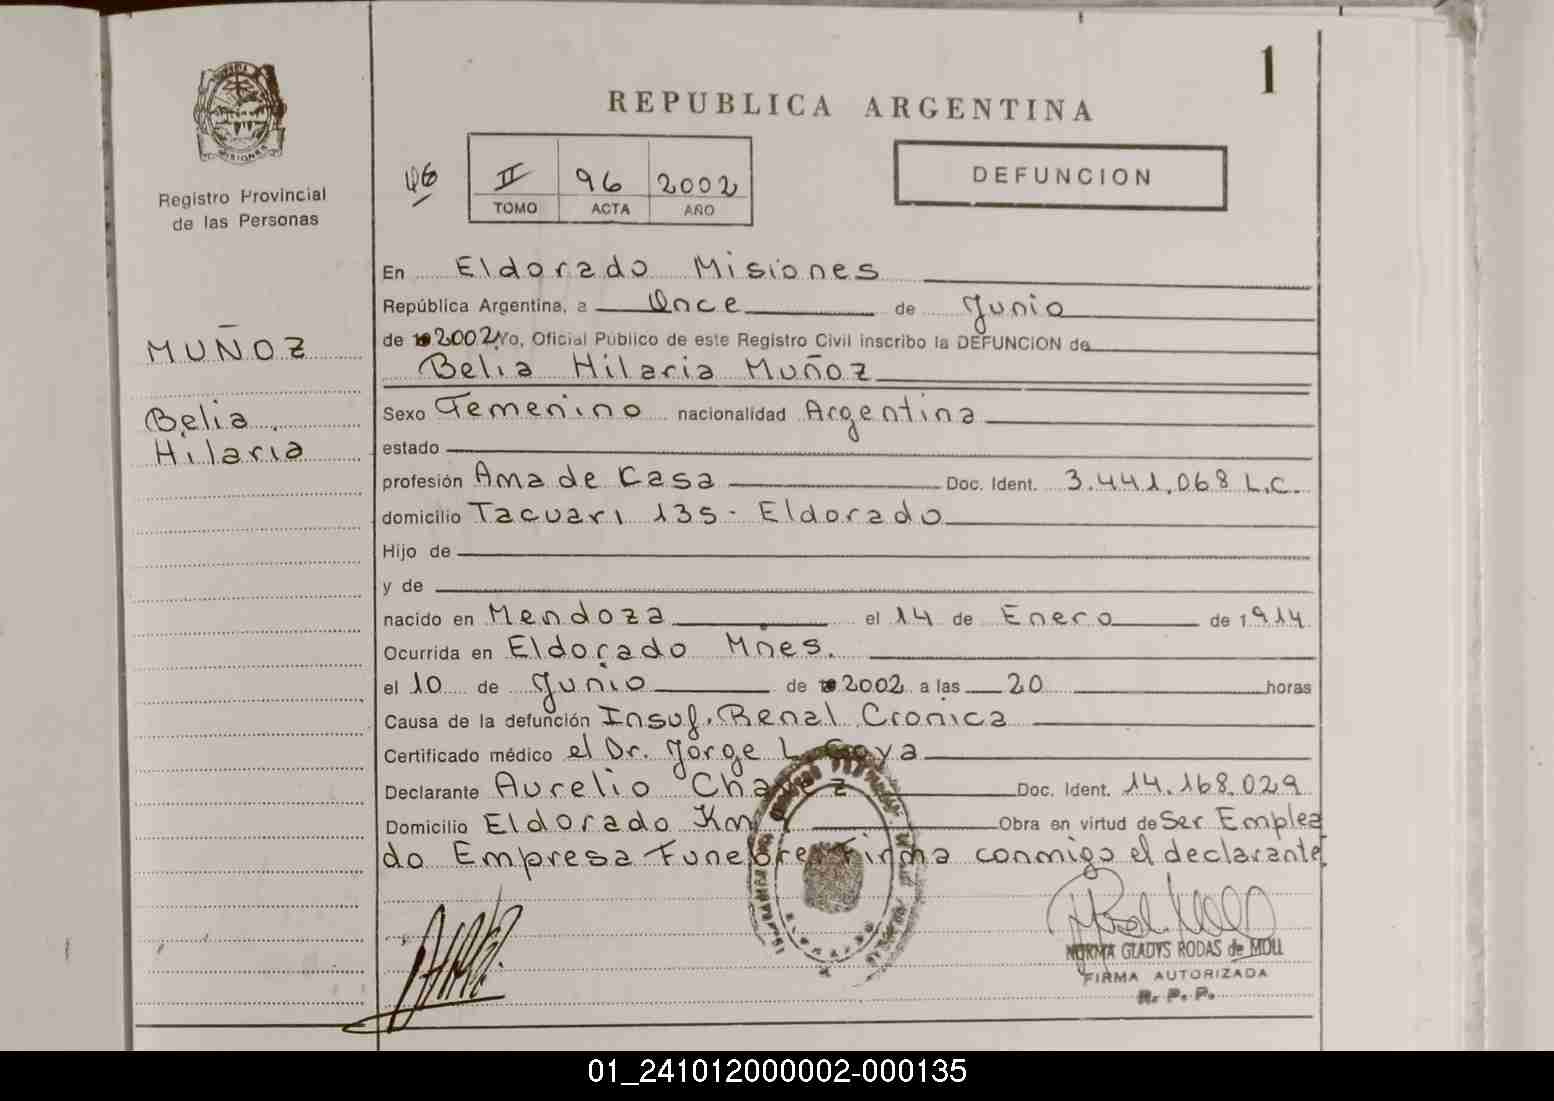 1
MISIONES
Registro Provincial
de las Personas
REPUBLICA ARGENTINA
96
II 96 2002
TOMO ACTA AÑO
DEFUNCION
MUÑOZ
Belia
Hilaria
En Eldorado Misiones
República Argentina, a Once de Junio
de 2002 Yo, Oficial Público de este Registro Civil inscribo la DEFUNCION de
Belia Hilaria Muñoz
Sexo Femenino nacionalidad Argentina
estado
profesión Ama de Casa Doc. Ident. 3.441.068 L.C.
domicilio Tacuari 135 - Eldorado
Hijo de
y de
nacido en Mendoza el 14 de Enero de 1914
Ocurrida en Eldorado Mnes.
el 10 de Junio de 2002 a las 20 horas
Causa de la defunción Insuf. Renal Cronica
Certificado médico el Dr. Jorge L. Goya
Declarante Aurelio Chavez Doc. Ident. 14.168.029
Domicilio Eldorado Km Obra en virtud de Ser Emplea
do Empresa Funebre Firma conmigo el declarante.
NORMA GLADYS RODAS de MOLL
FIRMA AUTORIZADA
R. P. P.
01_241012000002-000135